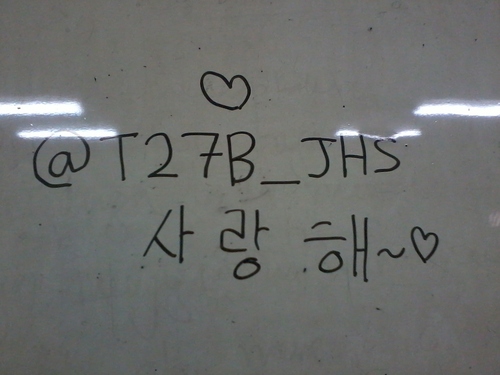 ♡
@T27B_JHS
사랑해~♡